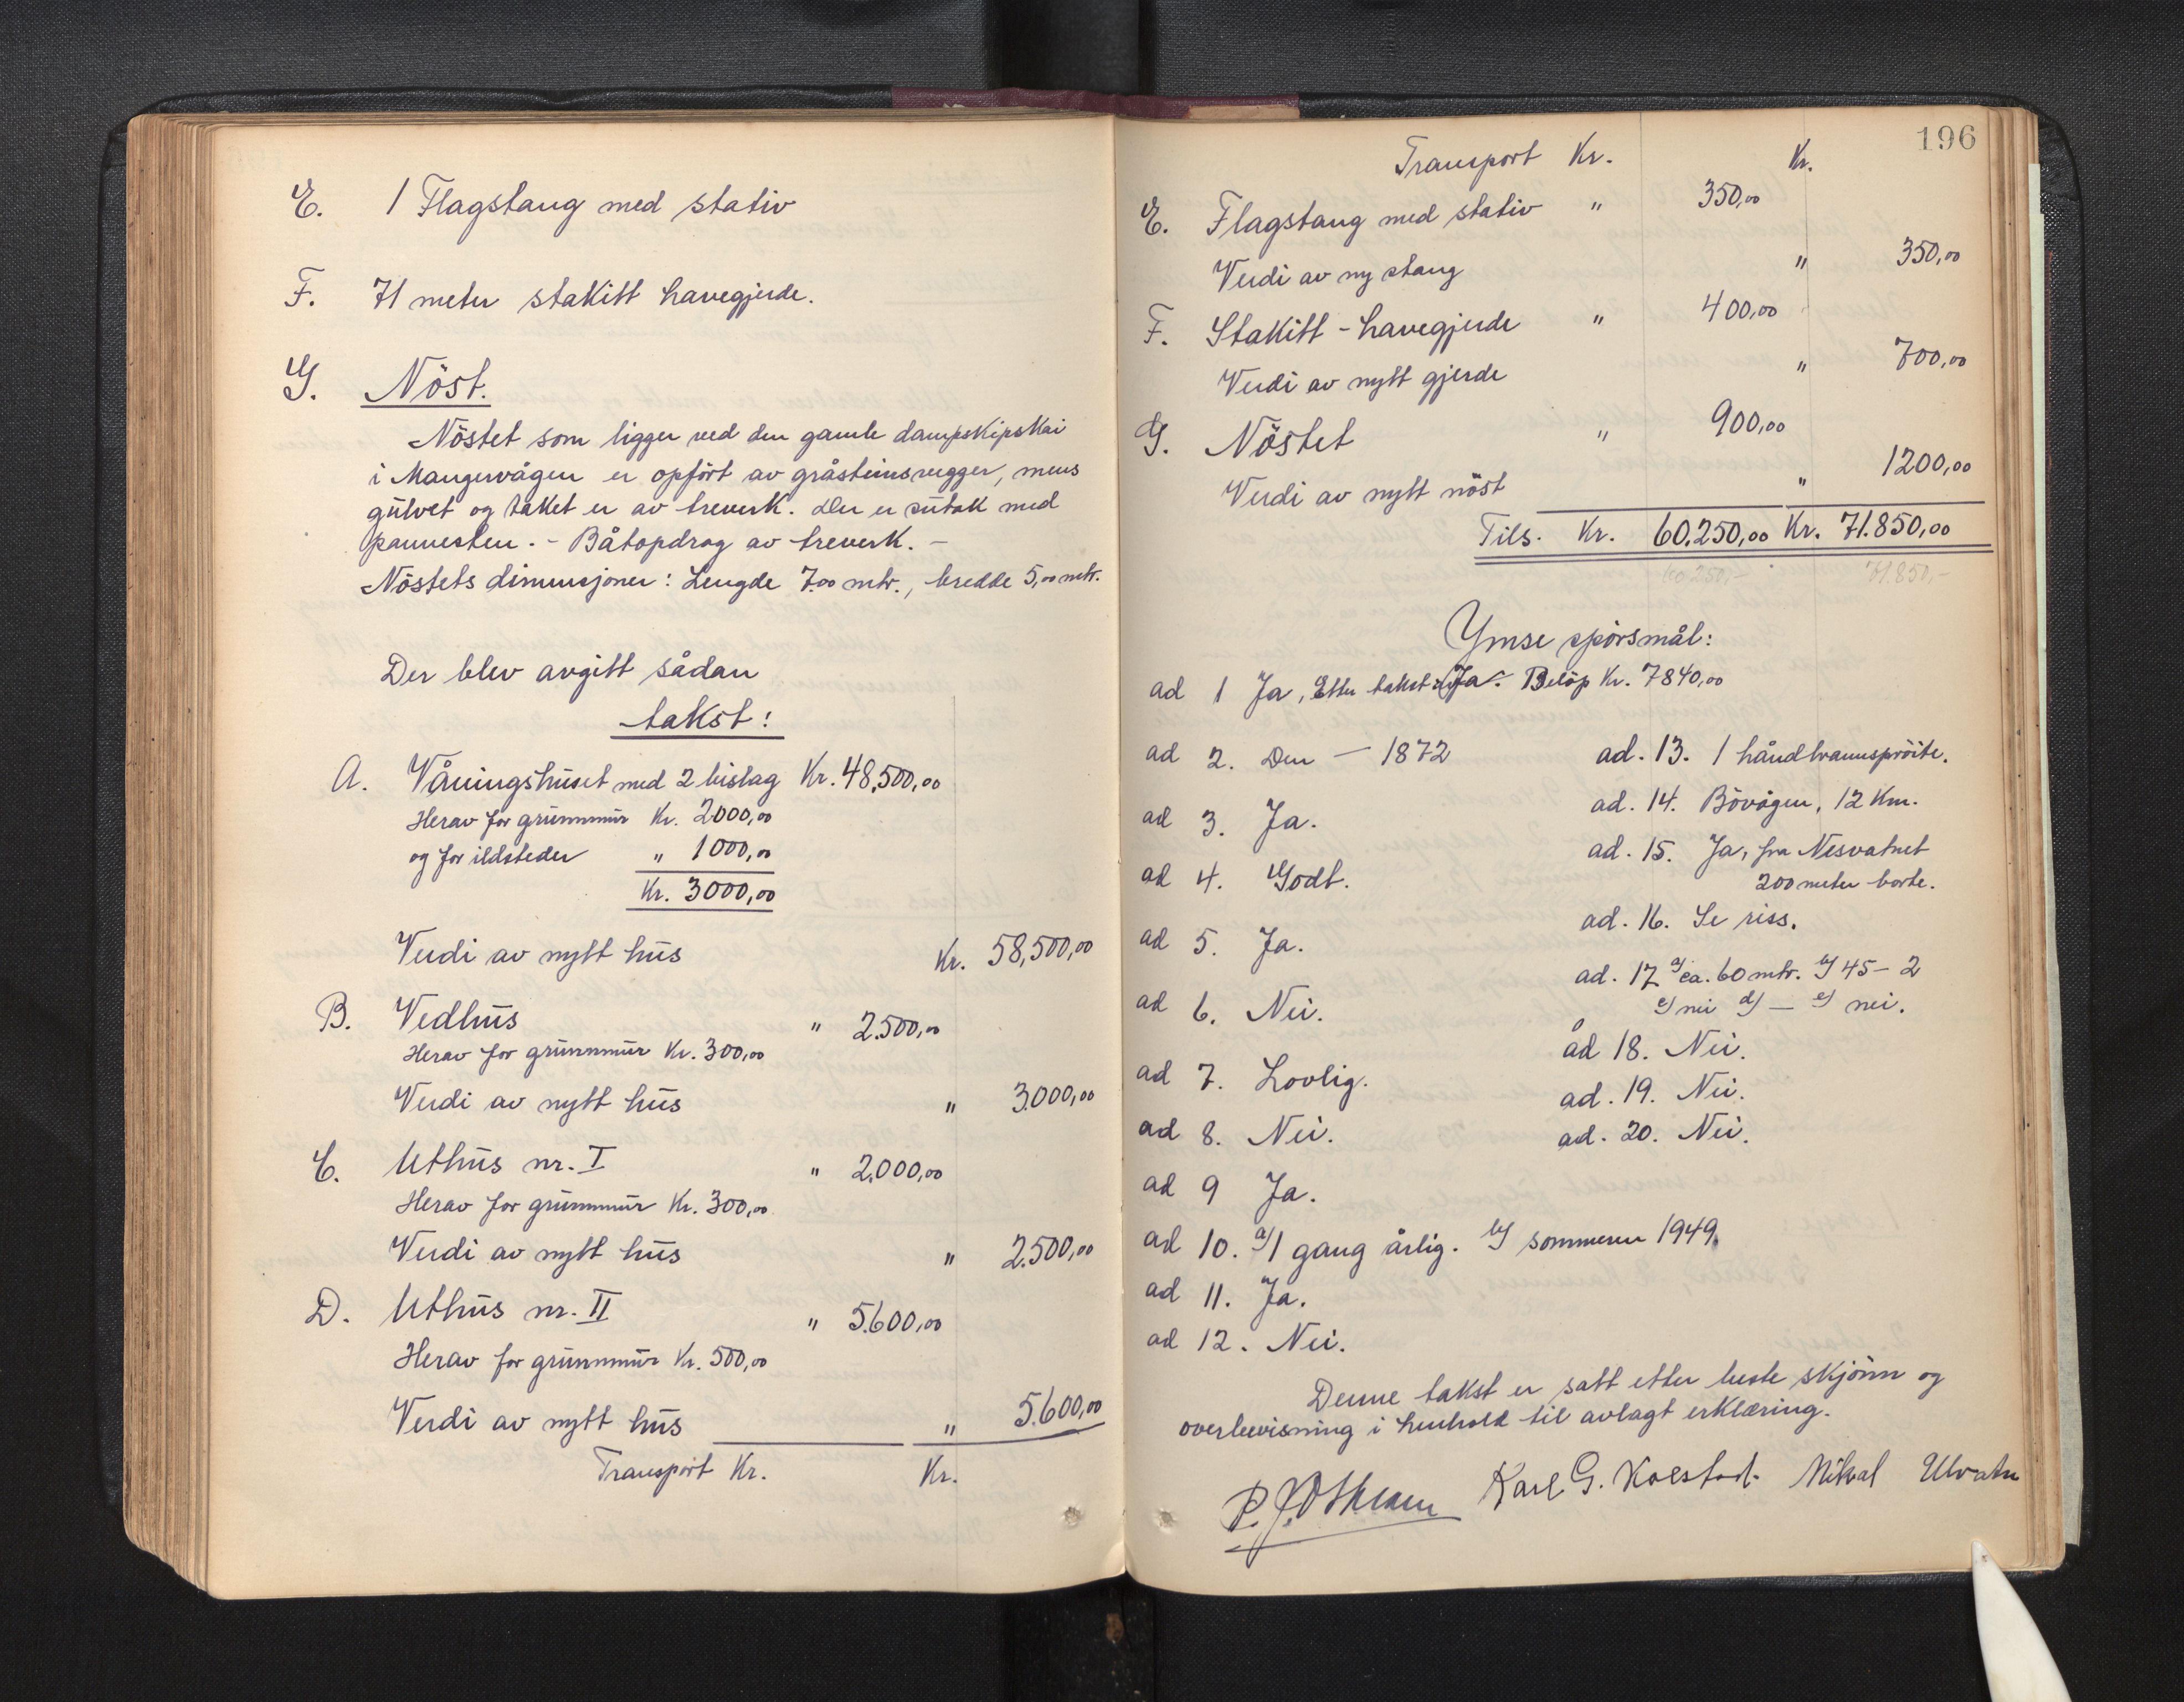 E. 1 Flagstang med stativ
F. 71 meter stakitt havegjerde.
G. Nöst.
Nöstet som ligger ved den gamle dampskipskai
i Mangervågen er opfört av gråsteinsvegger, mens
gulvet og taket er av treverk. Der er sutak med
pannesten. - Båtopdrag av treverk. -
Nöstets dimensjoner: Lengde 7,00 mtr., bredde 5,00 mtr.
Der blev avgitt sådan
takst:
A. Våningshuset med 2 bislag Kr. 48,500,00
Herav for grunnmur Kr. 2000,00
og for ildsteder " 1000,00
Kr. 3000,00
Verdi av nytt hus Kr. 58,500,00
B. Vedhus " 2.500,00
Herav for grunnmur Kr. 300,00
Verdi av nytt hus " 3.000,00
C. Uthus nr. I " 2.000,00
Herav for grunnmur Kr. 300,00
Verdi av nytt hus " 2.500,00
D. Uthus nr. II " 5.600,00
Herav for grunnmur Kr. 500,00
Verdi av nytt hus " 5.600,00
Transport Kr. Kr.
196
Transport Kr. Kr.
E. Flagstang med stativ " 350,00
Verdi av ny stang " 350,00
F. Stakitt-havegjerde " 400,00
Verdi av nytt gjerde " 700,00
G. Nöstet " 900,00
Verdi av nytt nöst " 1200,00
Tils. Kr. 60.250,00 Kr. 71.850,00
60.250,- 71.850,-
Ymse spörsmål:
ad 1 Ja, Etter takst Ja. Belöp Kr. 7840,00
ad 2. Den — 1872
ad 3. Ja.
ad 4. Godt.
ad 5. Ja.
ad 6. Nei.
ad 7. Lovlig.
ad 8. Nei.
ad 9 Ja.
ad 10. a/ 1 gang årlig. b/ sommeren 1949.
ad 11. Ja.
ad 12. Nei.
ad. 13. 1 håndbrannspröite.
ad. 14. Bövågen, 12 Km.
ad. 15. Ja, fra Nesvatnet
200 meter borte.
ad. 16. Se riss.
ad. 17 a/ ca. 60 mtr. b/ 45 - 2
c/ nei d/ — e/ nei.
ad 18. Nei.
ad. 19. Nei.
ad. 20. Nei.
Denne takst er satt etter beste skjönn og
overbevisning i henhold til avlagt erklæring.
Karl G. Kolstad. Mikal Ulvatn